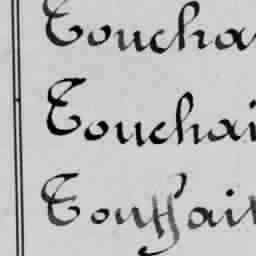 Toucha
Touchai
Toussait